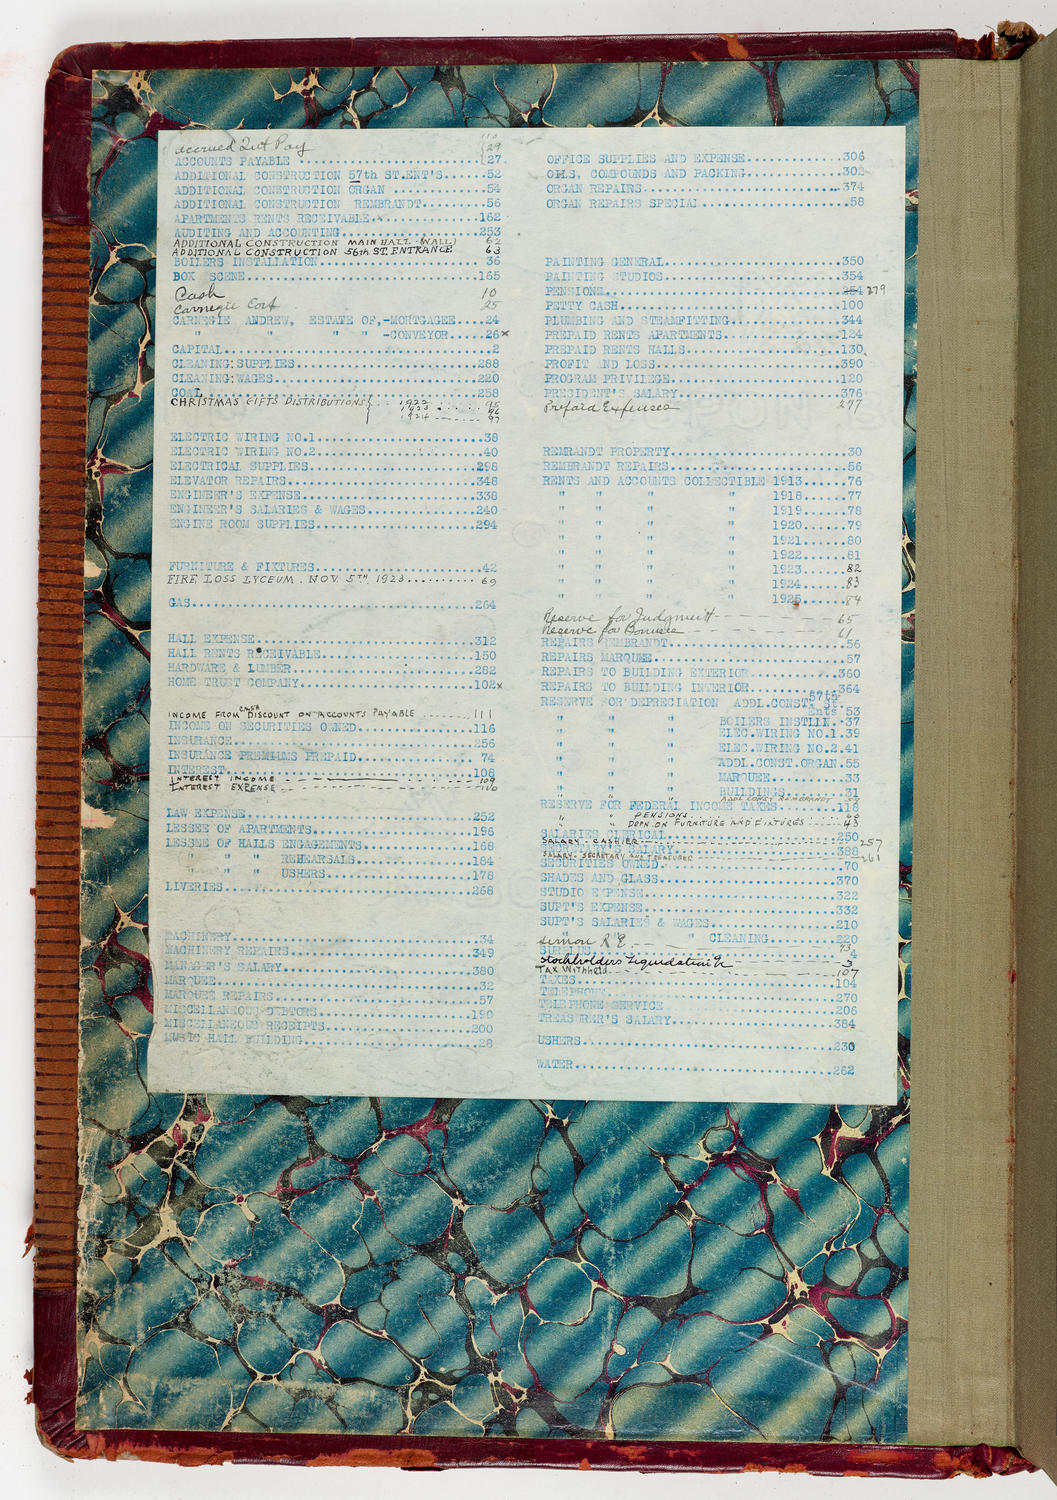 accrued Int Pay 110
29
ACCOUNTS PAYABLE ............27
ADDITIONAL CONSTRUCTION 57th ST.ENT'S......52
ADDITIONAL CONSTRUCTION ORGAN ............54
ADDITIONAL CONSTRUCTION REMBRANDT........56
APARTMENTS RENTS RECEIVABLE..............162
AUDITING AND ACCOUNTING..................253
ADDITIONAL CONSTRUCTION MAIN HALL (WALL) 62
ADDITIONAL CONSTRUCTION 56th ST. ENTRANCE 63
BOILERS INSTALLATION..................... 36
BOX SCENE................................165
Cash 10
Carnegie Corp 25
CARNEGIE ANDREW, ESTATE OF,-MONTGAGEE....24
" " -CONVEYOR.....26x
CAPITAL....................................2
CLEANING:SUPPLIES........................288
CLEANING:WAGES...........................220
COAL.....................................258
CHRISTMAS GIFTS DISTRIBUTIONS{ . . . 1922 . . . . . . 95
1923 . . . . . . 96
1924 - - - - - - 97
ELECTRIC WIRING NO.1......................38
ELECTRIC WIRING NO.2......................40
ELECTRICAL SUPPLIES......................298
ELEVATOR REPAIRS.........................348
ENGINEER'S EXPENSE.......................338
ENGINEER'S SALARIES & WAGES..............240
ENGINE ROOM SUPPLIES.....................294
FURNITURE & FIXTURES......................42
FIRE LOSS LYCEUM. NOV. 5TH, 1923.......... 69
GAS......................................264
HALL EXPENSE.............................312
HALL RENTS RECEIVABLE....................150
HARDWARE & LUMBER........................282
HOME TRUST COMPANY.......................102x
INCOME FROM CASH DISCOUNT ON ACCOUNTS PAYABLE ........111
INCOME ON SECURITIES OWNED...............116
INSURANCE................................256
INSURANCE PREMIUMS PREPAID............... 74
INTEREST.................................108
INTEREST INCOME 109
INTEREST EXPENSE 110
LAW EXPENSE..............................252
LESSEE OF APARTMENTS.....................196
LESSEE OF HALLS ENGAGEMENTS..............168
" " " REHEARSALS................184
" " " USHERS....................178
LIVERIES.................................268
MACHINERY.................................34
MACHINERY REPAIRS........................349
MANAGER'S SALARY.........................380
MARQUEE...................................32
MARQUEE REPAIRS...........................57
MISCELLANEOUS DEBTORS....................190
MISCELLANEOUS RECEIPTS...................200
MUSIC HALL BUILDING.......................28
OFFICE SUPPLIES AND EXPENSE..............306
OILS, COMPOUNDS AND PACKING..............302
ORGAN REPAIRS............................374
ORGAN REPAIRS SPECIAL.....................58
PAINTING GENERAL.........................350
PAINTING STUDIOS.........................354
PENSIONS.................................254 279
PETTY CASH...............................100
PLUMBING AND STEAMFITTING................344
PREPAID RENTS APARTMENTS.................124
PREPAID RENTS HALLS......................130
PROFIT AND LOSS..........................390
PROGRAM PRIVILEGE........................120
PRESIDENT'S SALARY.......................376
Prepaid Expenses 277
REMRANDT PROPERTY.........................30
REMBRANDT REPAIRS.........................56
RENTS AND ACCOUNTS COLLECTIBLE 1913......76
" " " " 1918......77
" " " " 1919......78
" " " " 1920......79
" " " " 1921......80
" " " " 1922......81
" " " " 1923......82
" " " " 1924......83
" " " " 1925......84
Reserve for Judgment 65
Reserve for Bonuses 61
REPAIRS REMBRANDT.........................56
REPAIRS MARQUEE...........................57
REPAIRS TO BUILDING EXTERIOR.............360
REPAIRS TO BUILDING INTERIOR.............364
RESERVE FOR DEPRECIATION ADDL.CONST. 57th St.
Ents 53
" " " BOILERS INSTLLN..37
" " " ELEC.WIRING NO.1.39
" " " ELEC.WIRING NO.2.41
" " " ADDL.CONST.ORGAN.55
" " " MARQUEE..........33
" " " BUILDINGS........31
" " " ADDL CONST REMBRANDT
RESERVE FOR FEDERAL INCOME TAXES.........118
" " PENSIONS
" " DEPN. ON FURNITURE AND FIXTURES 43
SALARIES CLERICAL........................250
SALARY - CASHIER 257
SECRETARY'S SALARY.......................388
SALARY. SECRETARY AND TREASURER 261
SECURITIES OWNED..........................70
SHADES AND GLASS.........................370
STUDIO EXPENSE...........................322
SUPT'S EXPENSE...........................332
SUPT'S SALARIES & WAGES..................210
" " " CLEANING.........220
Simon R E. 73
SURPLUS....................................4
Stockholders Liquidation 3
TAX Withheld 107
TAXES....................................104
TELEPHONE................................270
TELEPHONE SERVICE........................206
TREASURER'S SALARY.......................384
USHERS...................................230
WATER....................................262